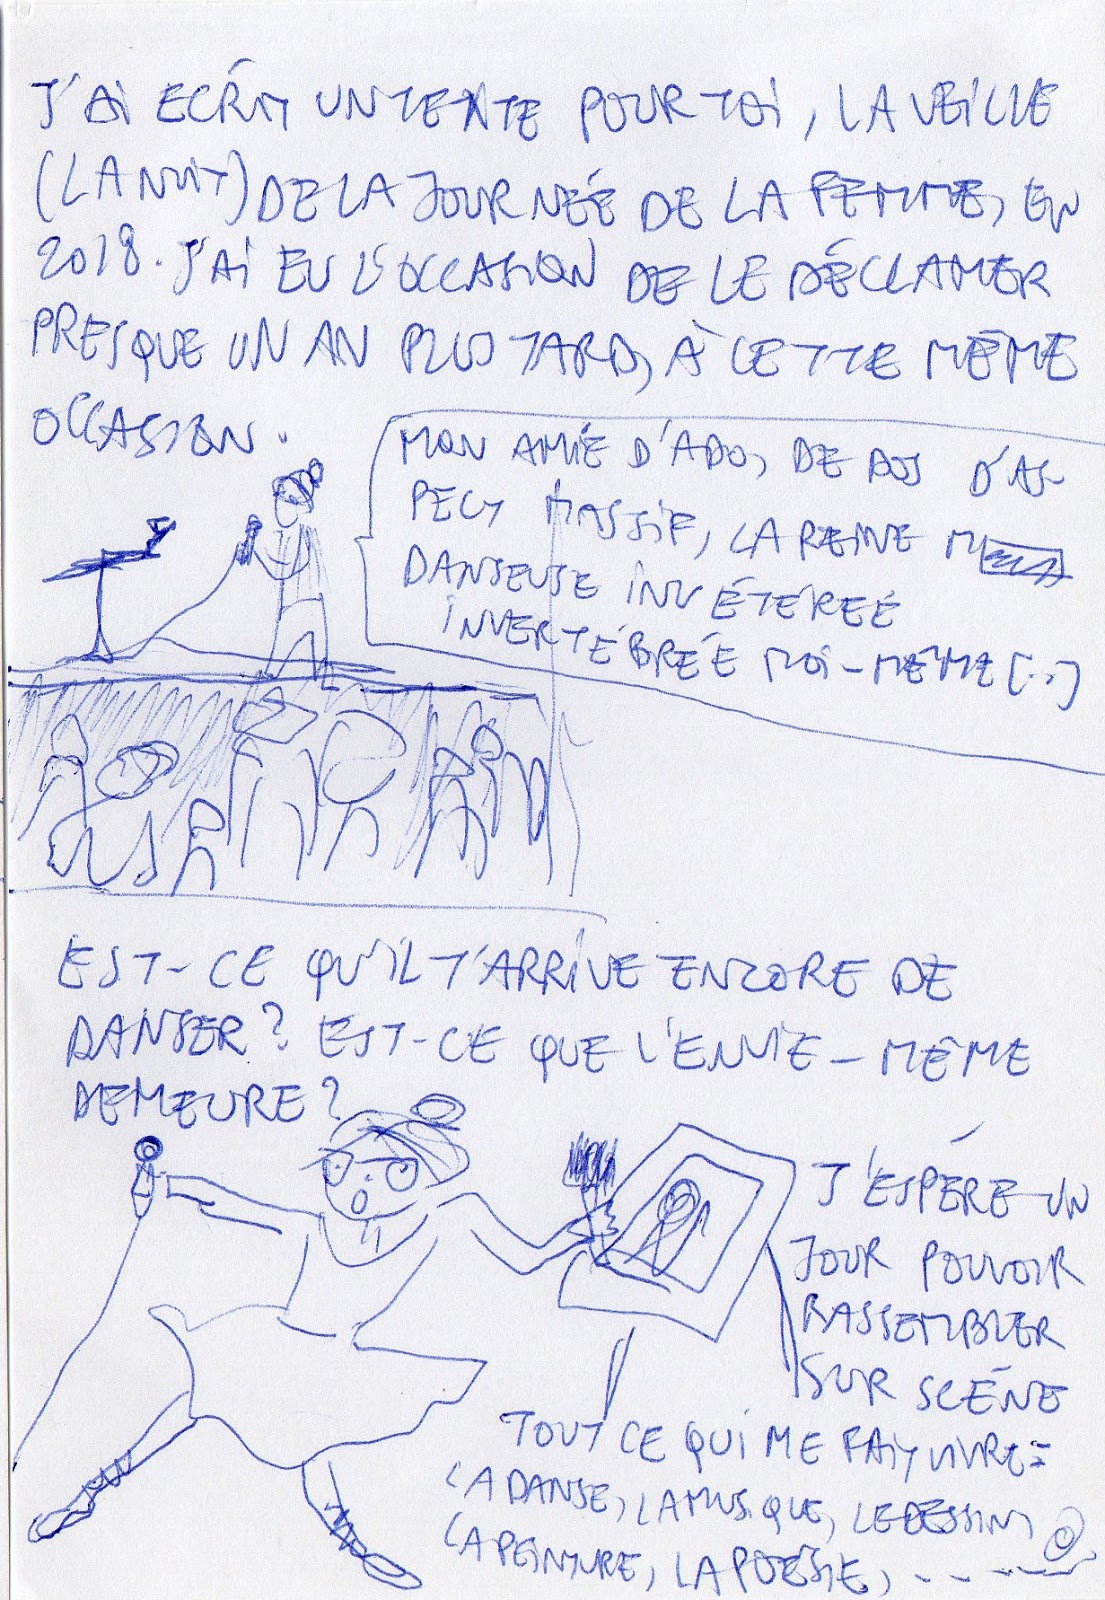 J'AI ÉCRIT UN TEXTE POUR TOI, LA VEILLE
(LA NUIT) DE LA JOURNÉE DE LA FEMME, EN
2018. J'AI EU L'OCCASION DE LE DÉCLAMER
PRESQUE UN AN PLUS TARD, À CETTE MÊME
OCCASION.
MON AMIE D'ADO, DE DOS D'AS-
PECT MASSIF, LA REINE
DANSEUSE INVÉTÉRÉE
INVERTÉBRÉE MOI-MÊME [...]
EST-CE QU'IL T'ARRIVE ENCORE DE
DANSER? EST-CE QUE L'ENVIE-MÊME
DEMEURE?
J'ESPÉRE UN
JOUR POUVOIR
RASSEMBLER
SUR SCÉNE
TOUT CE QUI ME FAIT VIVRE:
LA DANSE, LA MUSIQUE, LE DESSIN,
LA PEINTURE, LA POÉSIE, - - - - - -